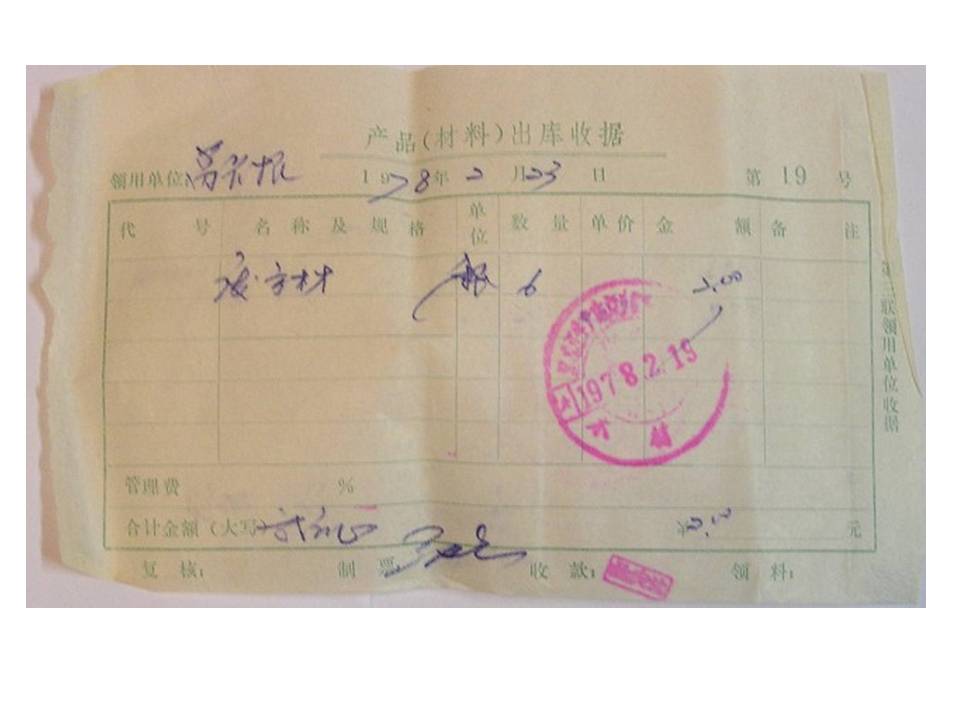 产品(材料)出库收据
领用单位: 1978年2月23日 第19号
代号 名称及规格 单位 数量 单价 金额 备注
废方材 根 6
1978.2.19
管理费 %
合计金额(大写) 贰元 ¥ 元
复核: 制票 收款: 领料:
第三联领用单位收据